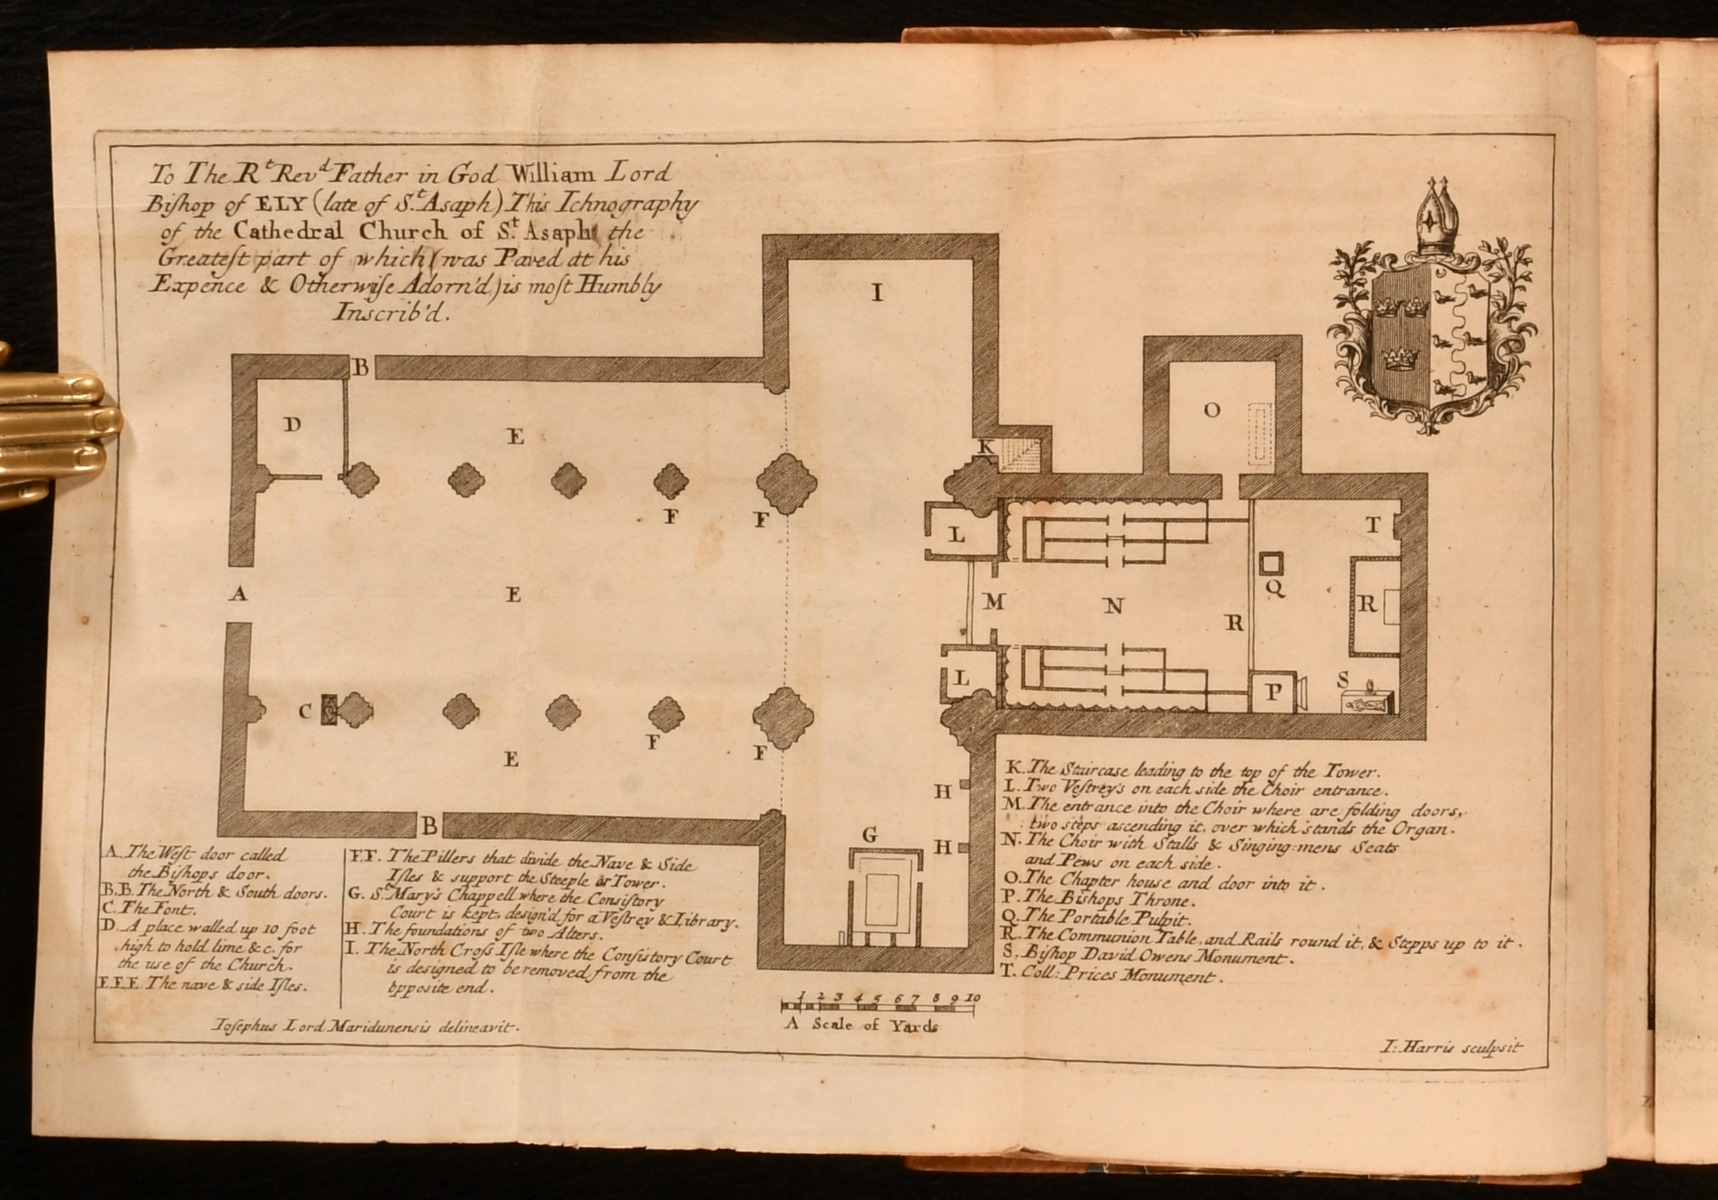 To The Rt Revd Father in God William Lord
Biſhop of ELY (late of St Asaph) This Ichnography
of the Cathedral Church of St Asaph the
Greateſt part of which (was Paved at his
Expence & Otherwiſe Adorn'd) is moſt Humbly
Inscrib'd.
I
B
D
E
O
K
F
F
L
T
A
E
M
N
Q
R
R
L
C
P
S
F
F
E
H
B
G
H
A. The West door called
the Biſhops door.
B.B. The North & South doors.
C. The Font.
D. A place walled up 10 foot
high to hold lime &c. for
the use of the Church.
E.E.E. The nave & side Iſles.
F.F. The Pillers that divide the Nave & Side
Iſles & support the Steeple or Tower.
G. St Mary's Chappell where the Conſistory
Court is kept, design'd for a Veſtrey & Library.
H. The foundations of two Alters.
I. The North Croſs Iſle where the Conſistory Court
is designed to be removed from the
opposite end.
K. The Staircase leading to the top of the Tower.
L. Two Veſtrey's on each side the Choir entrance.
M. The entrance into the Choir where are folding doors,
two steps ascending it, over which stands the Organ.
N. The Choir with Stalls & Singing-mens Seats
and Pews on each side.
O. The Chapter house and door into it.
P. The Bishops Throne.
Q. The Portable Pulpit.
R. The Communion Table, and Rails round it, & Stepps up to it.
S. Biſhop David Owens Monument.
T. Coll: Prices Monument.
1 2 3 4 5 6 7 8 9 10
A Scale of Yards
Iosephus Lord Maridunensis delineavit.
I: Harris sculpsit